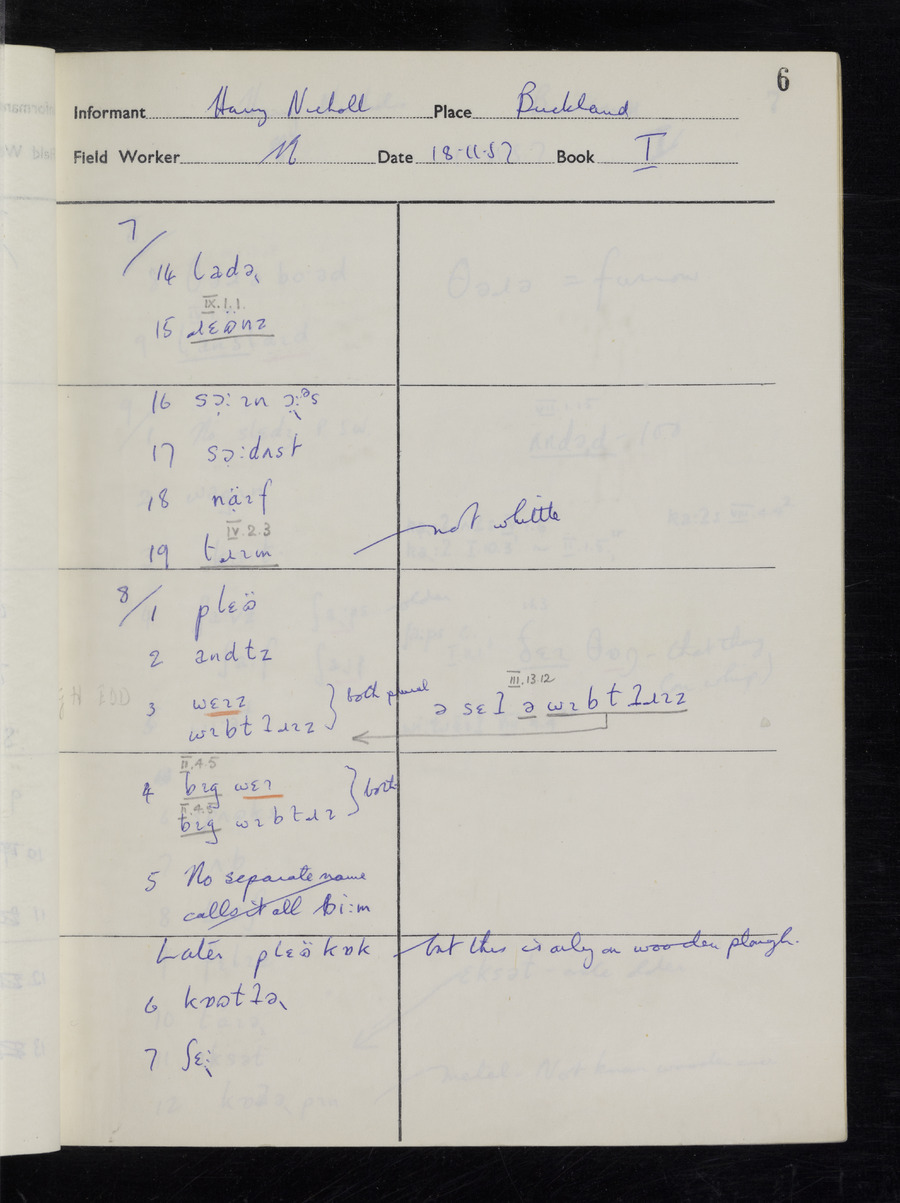 6
Informant Harry Nicholl Place Buckland
Field Worker N Date 18-11-57 Book I
7/
14 ladə˞
IX.1.1.
15 ɹɛɒ̈nz
16 sɔ̣: ɪn ɔ̣:˞əs
17 sɔ̣:dʌst
18 näɪf
IV.2.3
19 tɹɪm
not whittle
8/1 plɛɒ̈
2 andtz
3 wɛɪz
wɪbtɫɹɪz } both plural
III.13.12
ə sɛɫ ə wɪbtɫɹɪz
II.4.5
4 bɪg wɛɪ
II.4.5
bɪg wɪbtɹɪz } both
5 No separate name
calls it all bi:m
Later plɛɒ̈ kɒk but this is only on wooden plough.
6 kɒɷtɫə˞
7 ʃɛ:˞